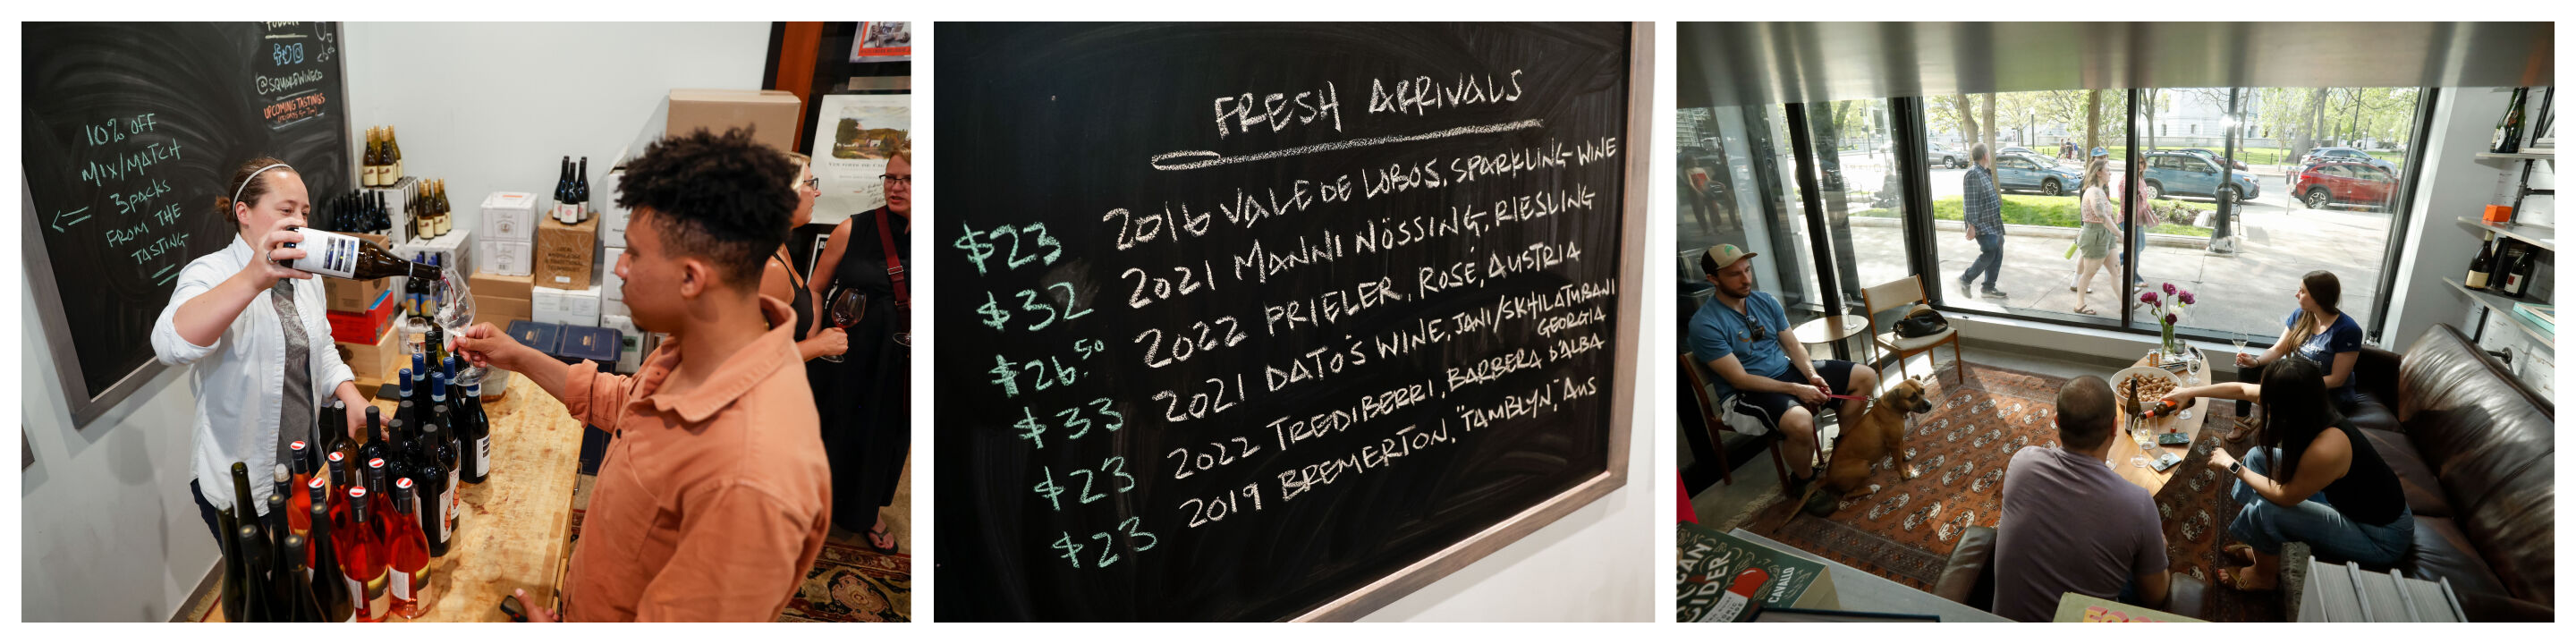 @SQUAREWINECO
UPCOMING TASTINGS
10% OFF
MIX/MATCH
3 PACKS
FROM THE
TASTING
FRESH ARRIVALS
$23 2016 VALE DE LOBOS, SPARKLING WINE
$32 2021 MANNI NÖSSING, RIESLING
$26.50 2022 PRIELER, ROSÉ, AUSTRIA
$33 2021 DATO'S WINE, JANI/SKHILATUBANI
GEORGIA
$23 2022 TREDIBERRI, BARBERA D'ALBA
$23 2019 BREMERTON, "TAMBLYN", AUS
CIDER
CAVALLO